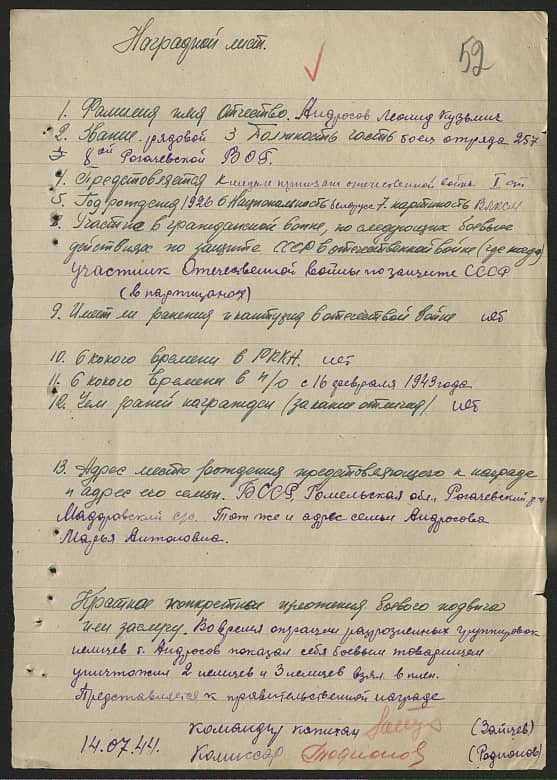 Наградной лист.
52
1. Фамилия имя Отчество. Андросов Леонид Кузьмич
2. Звание рядовой 3 Должность часть боец отряда 257
8ой Рогачевской ВОГ.
4. Представляется к медали партизан отечественной войны I ст
5. Год рождения 1926 6 Национальность белорус 7. партйность ВЛКСМ
8. Участие в гражданской войне, по следующих боевых
действиях по защите СССР в отечественной войне (где когда)
участник Отечественной войны по защите СССР
(в партизанах)
9. Имеет ли ранения и контузия в отечествой войне нет
10. С какого времени в РККА. нет
11. С какого времени в п/о с 16 февраля 1943 года.
12. Чем раней награжден (за какие отличия) нет
13. Адрес место рождения представляющего к награде
и адрес его семьи. БССР, Гомельская обл., Рогачевский р-н
Мадоровский с/с. Тот же и адрес семьи Андросова
Марья Антоновна.
Краткое конкретное изложения боевого подвига
или заслуги. Во время операции разрозненных группировок
немцев т. Андросов показал себя боевым товарищем
уничтожил 2 немцев и 3 немцев взял в плен.
Представляется к правительственной награде
Командир капитан (Зайцев)
14.07.44. Комиссар Родионов (Родионов)